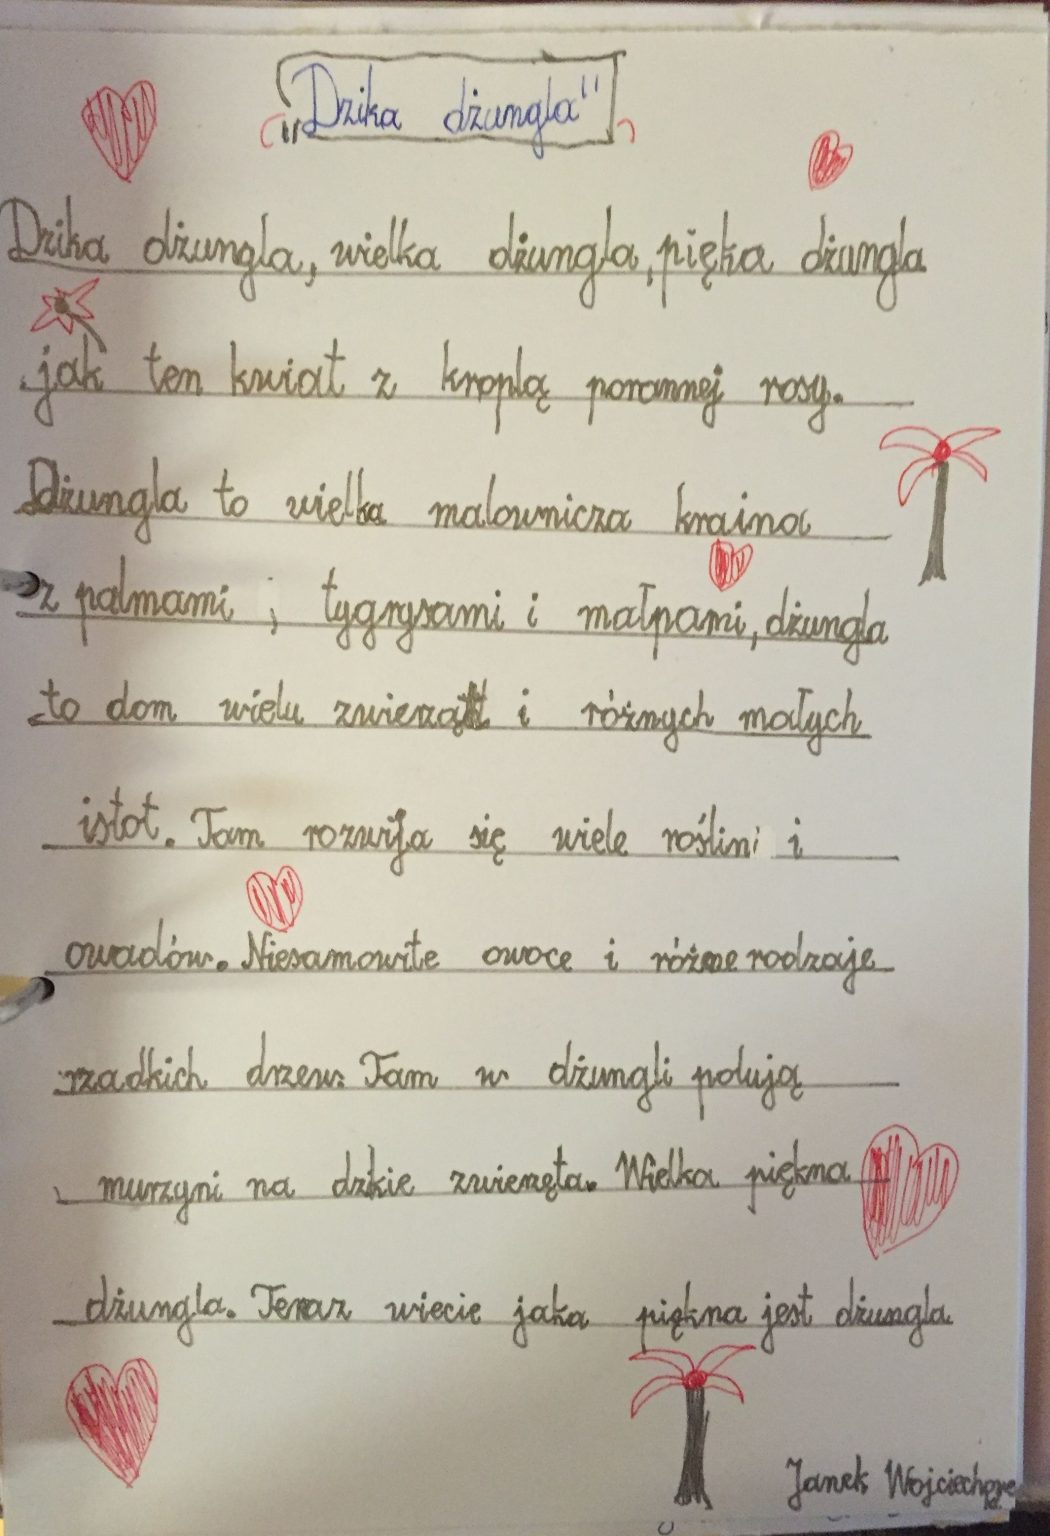 „Dzika dżungla"
Dzika dżungla, wielka dżungla, pięka dżungla
jak ten kwiat z kroplą porannej rosy.
Dżungla to wielka malownicza kraina
z palmami , tygrysami i małpami, dżungla
to dom wielu zwierząt i różnych małych
istot. Tam rozwija się wiele roślini i
owadów. Niesamowite owoce i różne rodzaje
rzadkich drzew. Tam w dżungli polują
murzyni na dzikie zwierzęta. Wielka piękna
dżungla. Teraz wiecie jaka piękna jest dżungla
Janek